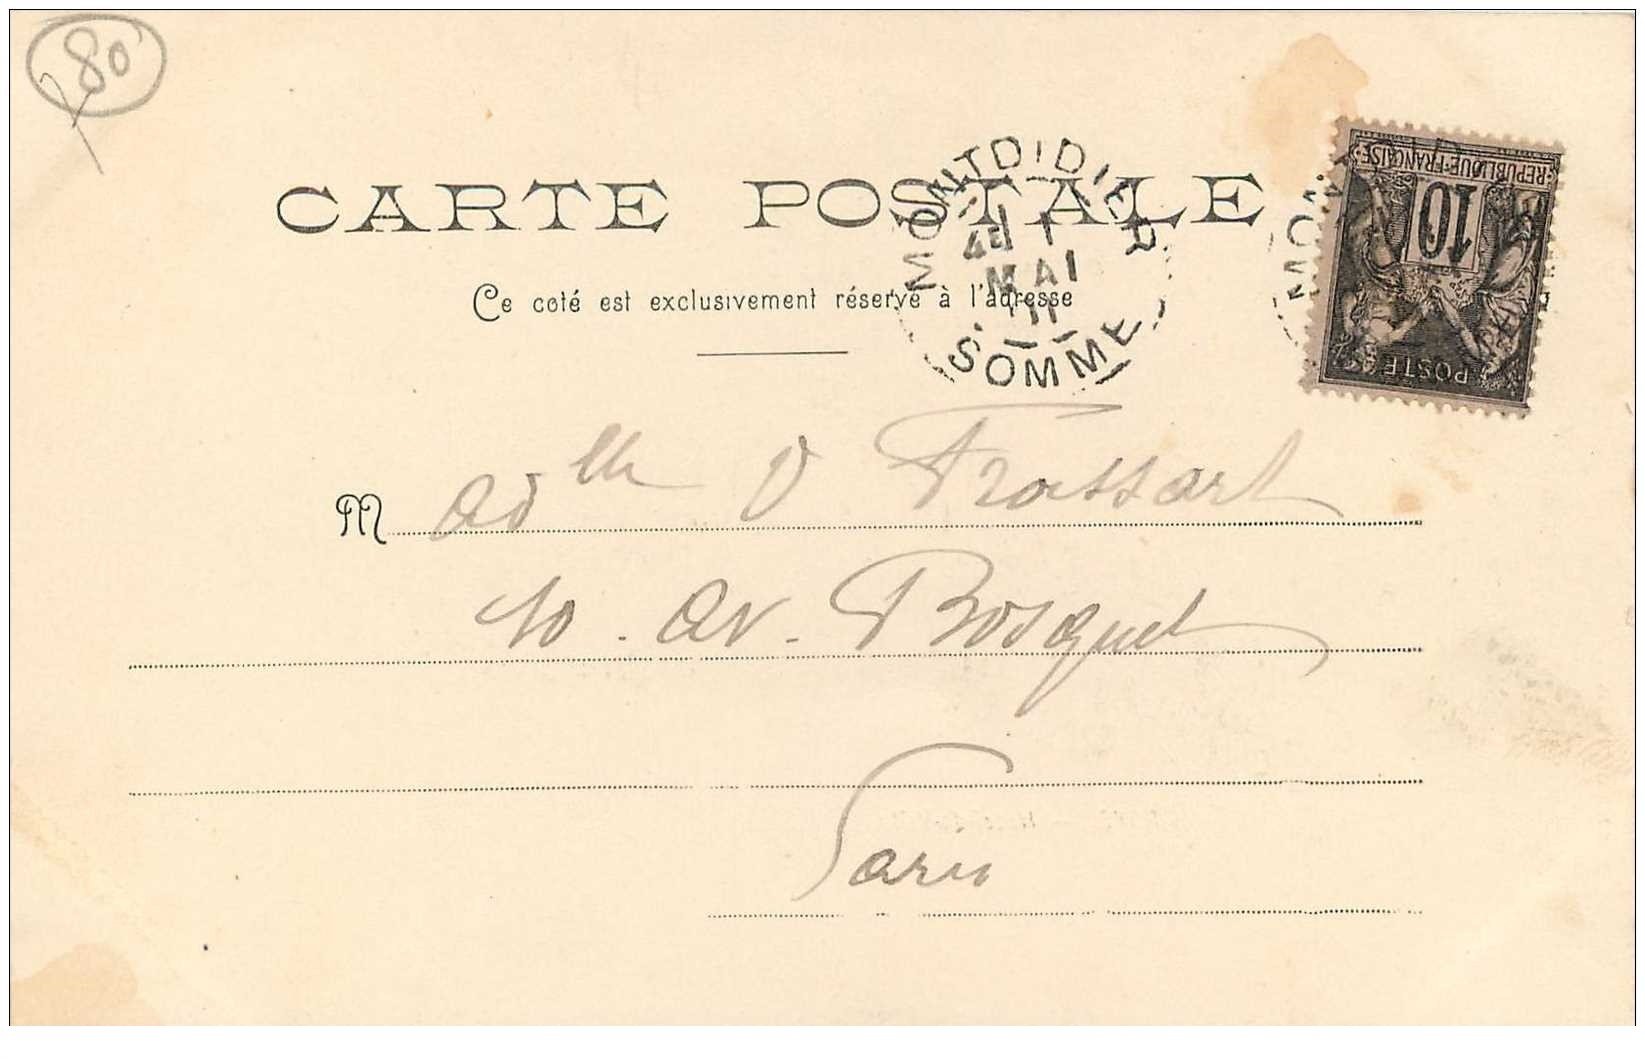 80
CARTE POSTALE
Ce coté est exclusivement réservé à l'adresse
MONTDIDIER
4E 1
MAI
11
SOMME
REPUBLIQUE FRANÇAISE
10
POSTE
MON
M
V Froissart
10. av. Bosquet
Paris